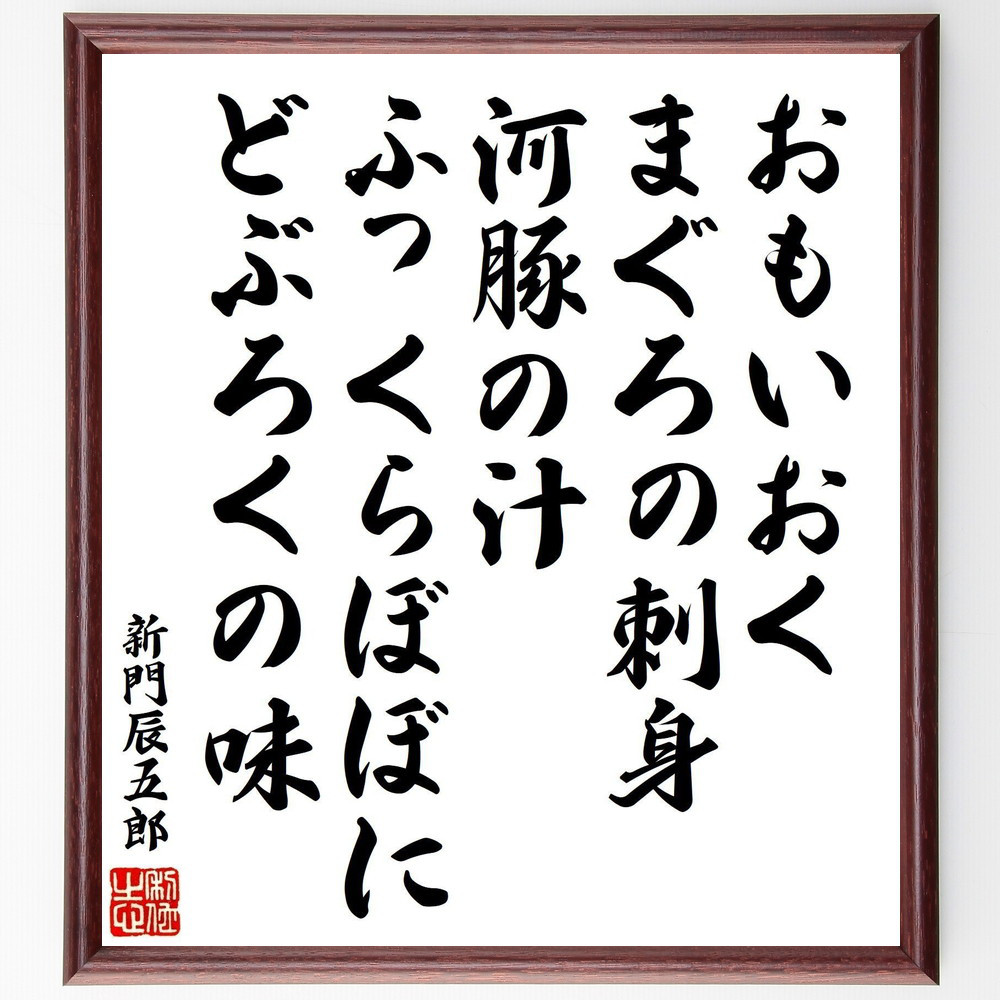 おもいおく
まぐろの刺身
河豚の汁
ふっくらぼぼに
どぶろくの味
新門辰五郎